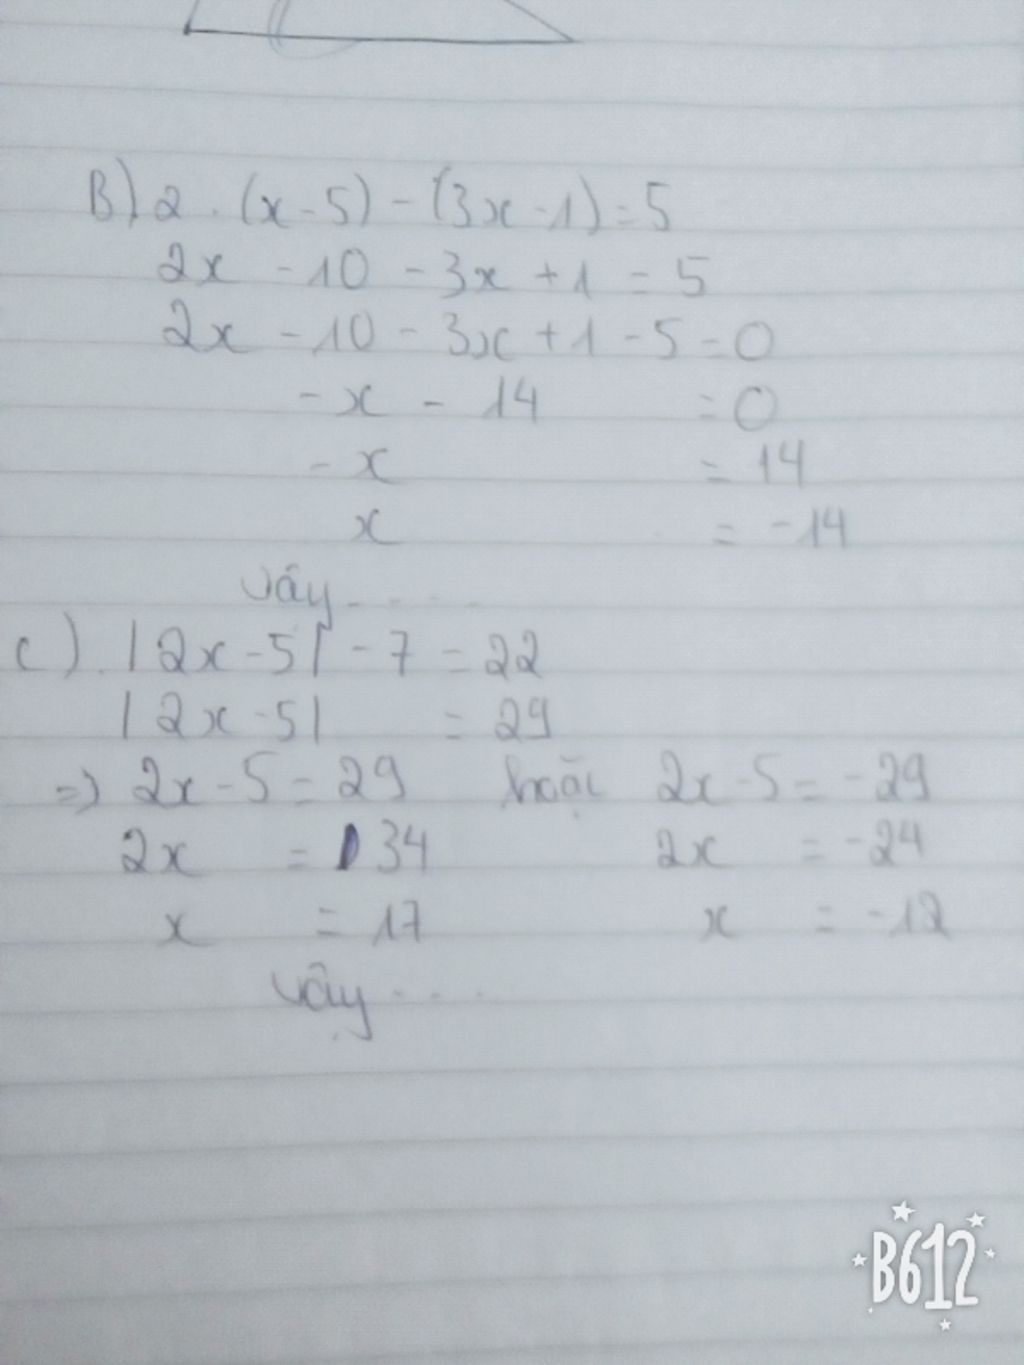 B) 2 . (x - 5) - (3x - 1) = 5
2x - 10 - 3x + 1 = 5
2x - 10 - 3x + 1 - 5 = 0
- x - 14 = 0
- x = 14
x = - 14
Vậy - - - -
c) |2x - 5| - 7 = 22
|2x - 5| = 29
=> 2x - 5 = 29 hoặc 2x - 5 = - 29
2x = 34 2x = - 24
x = 17 x = - 12
Vậy - - -
B612